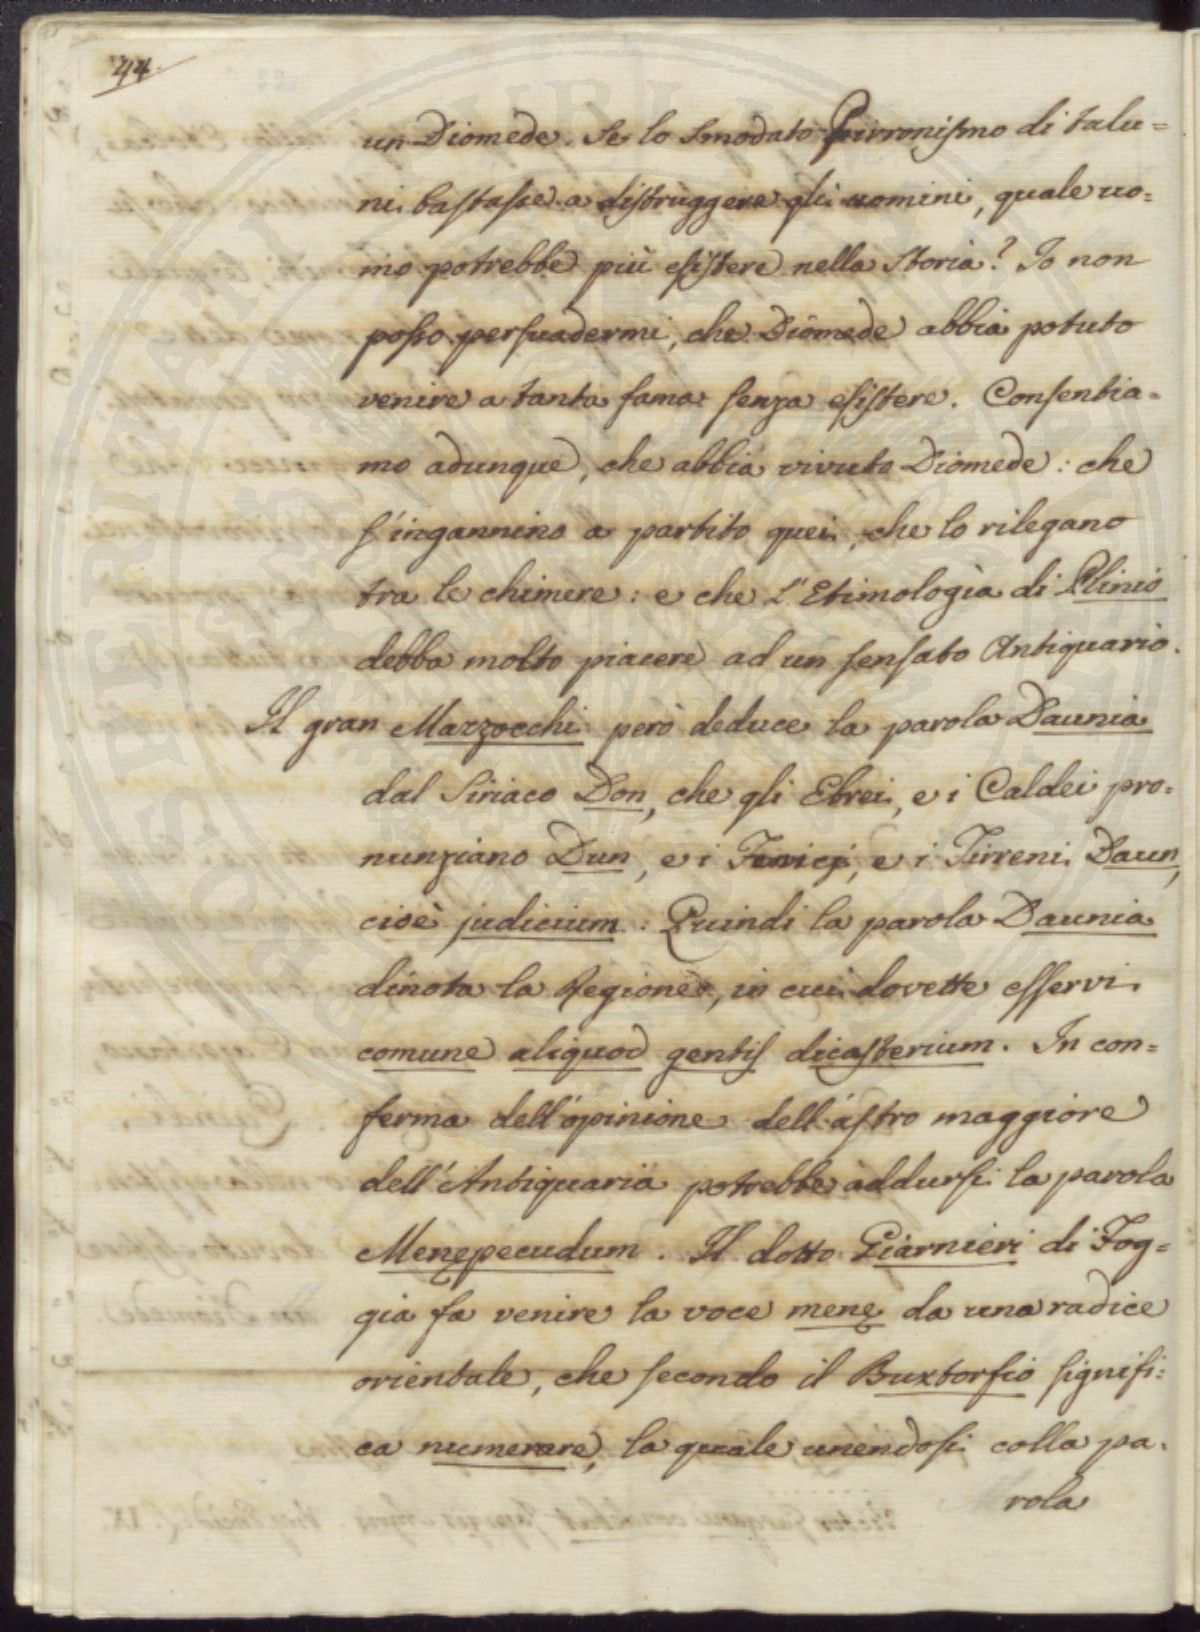 44.
un Diomede. Se lo smodato Pirronismo di talu=
ni bastasse a distruggere gli uomini, quale uo=
mo potrebbe più esistere nella Storia? Io non
posso persuadermi, che Diomede abbia potuto
venire a tanta fama senza esistere. Consentia=
mo adunque, che abbia vivuto Diomede: che
s'ingannino a partito quei, che lo rilegano
tra le chimere: e che l'Etimologia di Plinio
debba molto piacere ad un sensato Antiquario.
Il gran Mazzocchi però deduce la parola Daunia
dal Siriaco Don, che gli Ebrei, e i Caldei pro=
nunziano Dun, e i Fenicj, e i Tirreni Daun,
cioè judicium: Quindi la parola Daunia
dinota la Regione, in cui dovette esservi
comune aliquod gentis dicasterium. In con=
ferma dell'opinione dell'astro maggiore
dell'Antiquaria potrebbe addursi la parola
Menępecudum. Il dotto Giarnieri di Fog=
gia fa venire la voce menę da una radice
orientale, che secondo il Buxtorfio signifi=
ca numerare, la quale unendosi colla pa=
rola